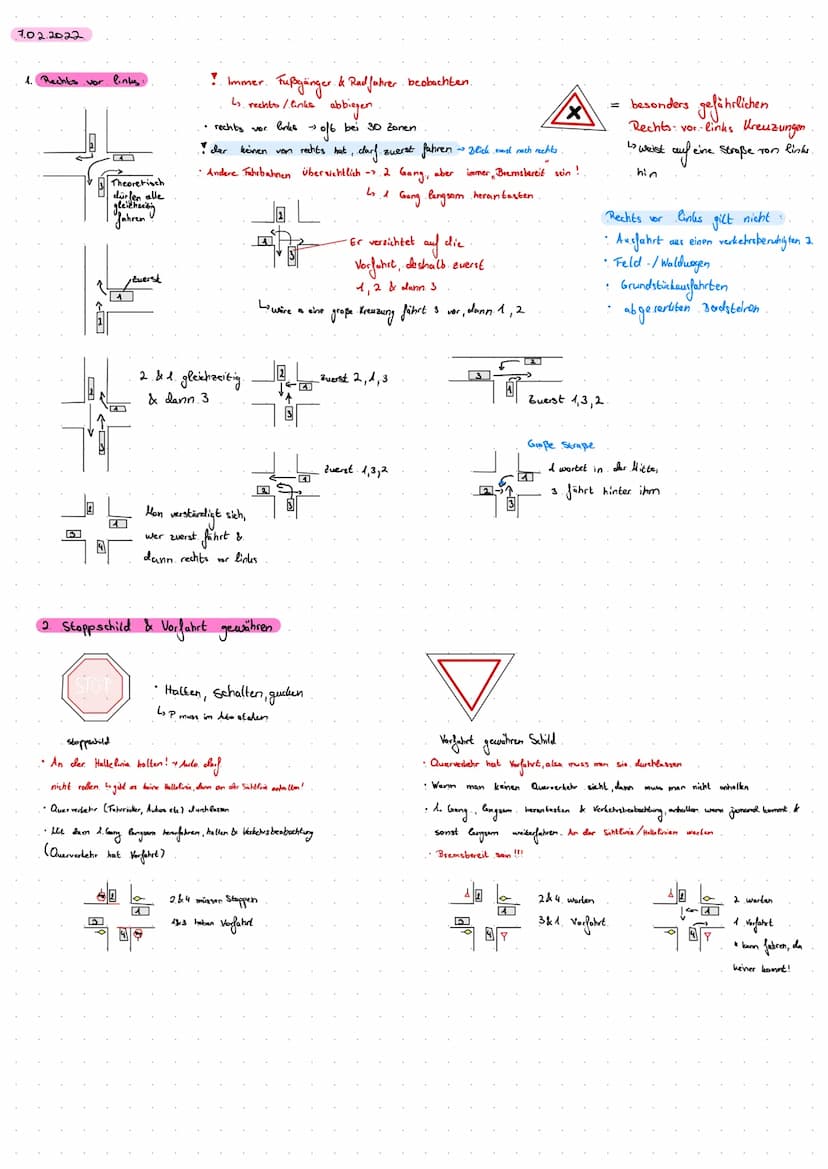 7.02.2022
1. Rechts vor links:
! Immer Fußgänger & Radfahrer beobachten.
↳ rechts/links abbiegen
• rechts vor links → oft bei 30 Zonen
! der keinen von rechts hat, darf zuerst fahren → Blick nach rechts
• Andere Fahrbahnen übersichtlich → 2 Gang, aber immer „Bremsbereit" sein!
↳ 1 Gang langsam herantasten
= besonders gefährlichen
Rechts-vor-links Kreuzungen
↳ weist auf eine Straße von links
hin
2
1
3
Theoretisch
dürfen alle
gleichzeitig
fahren
2
1
3
Er verzichtet auf die
Vorfahrt, deshalb zuerst
1, 2 & dann 3
↳ wäre es eine große Kreuzung fährt 3 vor, dann 1, 2
Rechts vor links gilt nicht:
• Ausfahrt aus einen verkehrsberuhigten
• Feld-/Waldwegen
• Grundstücksausfahrten
• abgesenkten Bordsteinen
zuerst
1
2
2
1
3
2 & 1 gleichzeitig
& dann 3
2
1
3
Zuerst 2, 1, 3
2
3
1
Zuerst 1, 3, 2
1
2
3
Zuerst 1, 3, 2
Große Straße
1
2
3
1 wartet in der Mitte,
3 fährt hinter ihm
2
1
3
4
Man verständigt sich,
wer zuerst fährt &
dann rechts vor links
2 Stoppschild & Vorfahrt gewähren
STOP
• Halten, schalten, gucken
Stoppschild
• An der Haltelinie halten! → Auto darf
nicht rollen ↳ gibt es keine Haltelinie, dann an der Sichtlinie anhalten!
• Querverkehr (Fahrräder, Autos etc) durchlassen
• Mit dem 1. Gang langsam heranfahren, halten & Verkehrsbeobachtung
(Querverkehr hat Vorfahrt)
Vorfahrt gewähren Schild
• Querverkehr hat Vorfahrt, also muss man sie durchlassen
• Wenn man keinen Querverkehr sieht, dann muss man nicht anhalten
• 1. Gang, langsam herantasten & Verkehrsbeobachtung, anhalten wenn jemand kommt &
sonst langsam weiterfahren. An der Sichtlinie/Haltelinien warten
• Bremsbereit sein!!!
2
1
3
4
2 & 4 müssen Stoppen
1 & 3 haben Vorfahrt
2
1
3
4
2 & 4 warten
3 & 1 Vorfahrt
2
1
4
2 warten
1 Vorfahrt
4 kann fahren, da
keiner kommt!